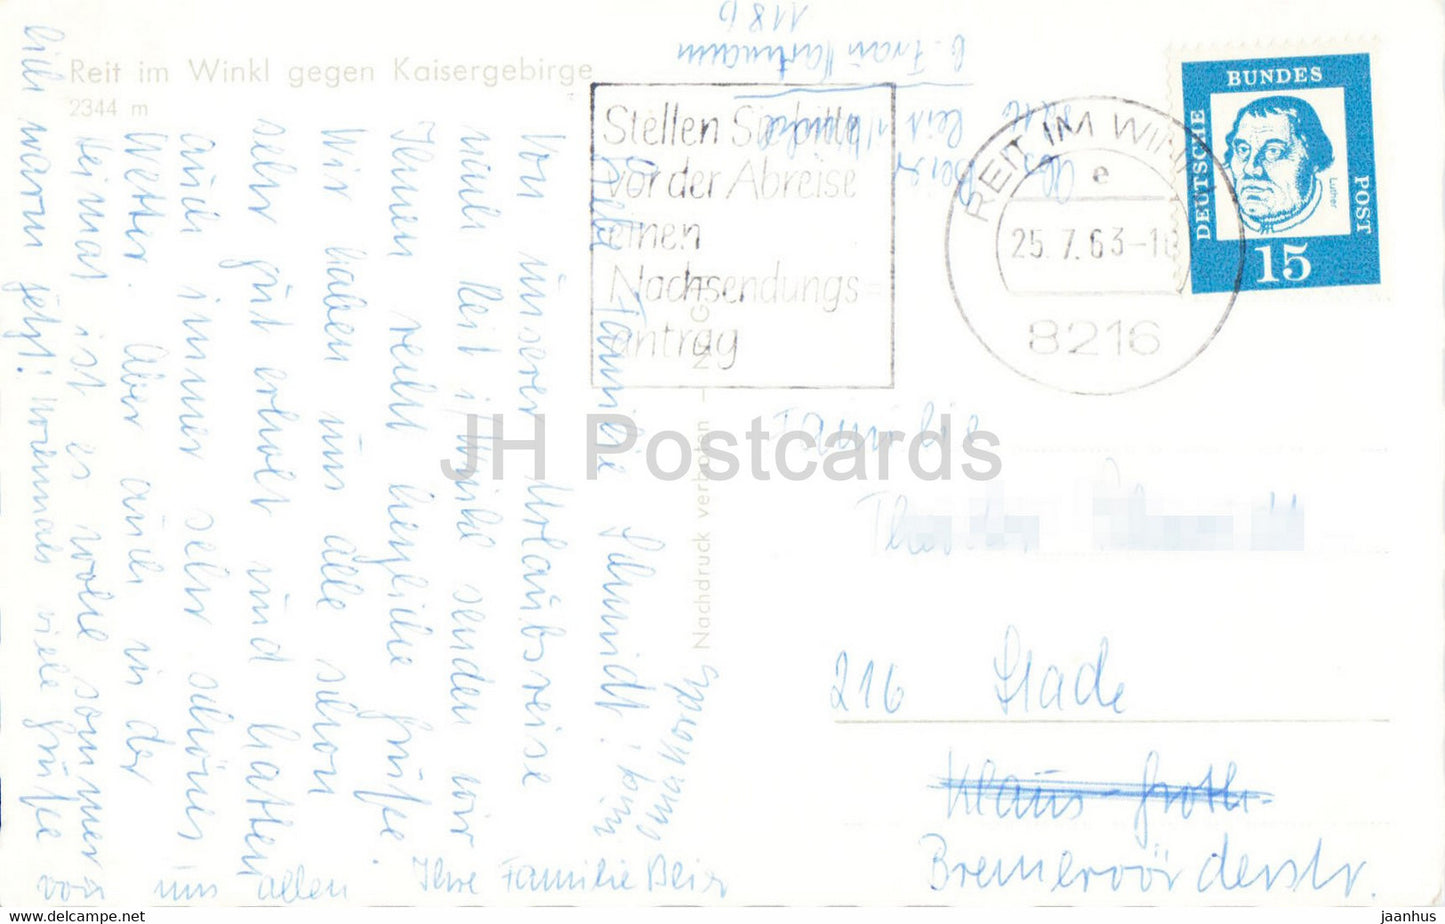 Reit im Winkl gegen Kaisergebirge
2344 m
Liebe Familie Schmidt!
Von unserer Urlaubsreise
nach Reit i/Winkl senden wir
Ihnen recht herzliche Grüße.
Wir haben uns alle schon
sehr gut erholt und hatten
auch immer sehr schönes
Wetter. Aber auch in der
Heimat ist es wohl sommer-
lich warm jetzt! Nochmals viele Grüße von
uns allen Ihre Familie Beier
Abs. Beier
8216 Reit i/Winkl
b. Frau Hartmann
118 b
Stellen Sie bitte
vor der Abreise
einen
Nachsendungs
antrag
REIT IM WINKL
e
25.7.63-18
8216
DEUTSCHE
BUNDES
POST
Luther
15
Nachdruck verboten
Familie
216 Stade
Klaus-Groth-
Bremervörderstr.
JH Postcards
jaanhus — www.hippostcard.com